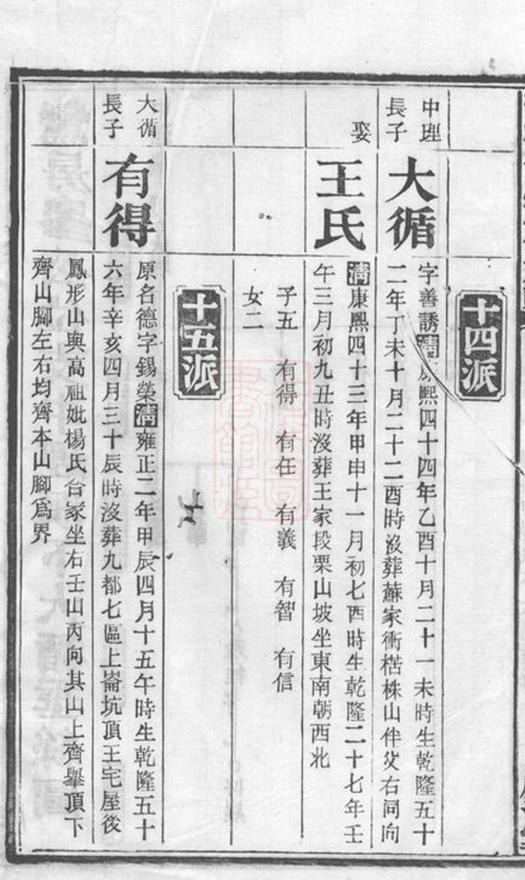 十四派
中理
長子
大循
字善誘清康熙四十四年乙酉十月二十一未時生乾隆五十
二年丁未十月二十二酉時沒葬蘇家衝楛株山伴父右同向
娶
王氏
清康熙四十三年甲申十一月初七酉時生乾隆二十七年壬
午三月初九丑時沒葬王家段栗山坡坐東南朝西北
子五 有得 有任 有義 有智 有信
女二
十五派
大循
長子
有得
原名德字錫榮清雍正二年甲辰四月十五午時生乾隆五十
六年辛亥四月三十辰時沒葬九都七區上崙坑頂王宅屋後
鳳形山與高祖妣楊氏合冢坐右壬山丙向其山上齊舉頂下
齊山腳左右均齊本山腳爲界